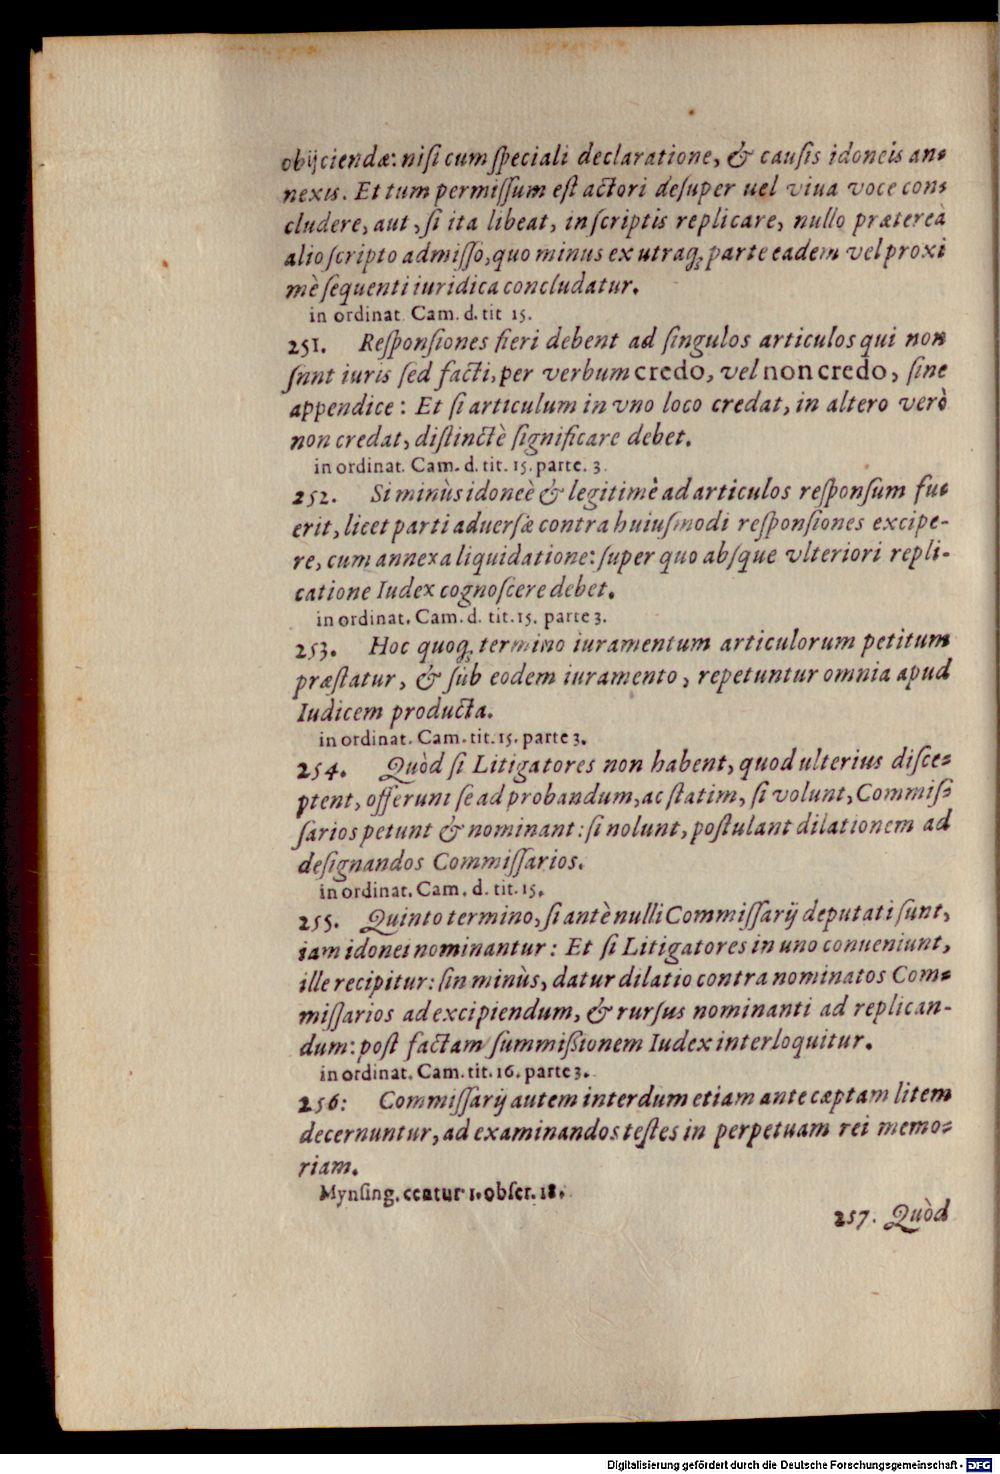 obijciendæ: nisi cum speciali declaratione, & causis idoneis an=
nexis. Et tum permissum est actori desuper uel viua voce con=
cludere, aut, si ita libeat, in scriptis replicare, nullo prætereà
alio scripto admisso, quo minus ex utraq; parte eadem vel proxi
mè sequenti iuridica concludatur.
in ordinat. Cam. d. tit 15.
251. Responsiones fieri debent ad singulos articulos qui non
sunt iuris sed facti, per verbum credo, vel non credo, sine
appendice: Et si articulum in vno loco credat, in altero verò
non credat, distinctè significare debet.
in ordinat. Cam. d. tit. 15. parte. 3.
252. Si minùs idoneè & legitimè ad articulos responsum fu=
erit, licet parti aduersæ contra huiusmodi responsiones excipe-
re, cum annexa liquidatione: super quo absque vlteriori repli-
catione Iudex cognoscere debet.
in ordinat. Cam. d. tit. 15. parte 3.
253. Hoc quoq; termino iuramentum articulorum petitum
præstatur, & sub eodem iuramento, repetuntur omnia apud
Iudicem producta.
in ordinat. Cam. tit. 15. parte 3.
254. Quòd si Litigatores non habent, quod ulterius disce=
ptent, offerunt se ad probandum, ac statim, si volunt, Commis=
sarios petunt & nominant: si nolunt, postulant dilationem ad
designandos Commissarios.
in ordinat. Cam. d. tit. 15.
255. Quinto termino, si antè nulli Commissarij deputati sunt,
iam idonei nominantur: Et si Litigatores in uno conueniunt,
ille recipitur: sin minùs, datur dilatio contra nominatos Com=
missarios ad excipiendum, & rursus nominanti ad replican-
dum: post factam summißionem Iudex interloquitur.
in ordinat. Cam. tit. 16. parte 3.
256: Commissarij autem interdum etiam ante cæptam litem
decernuntur, ad examinandos testes in perpetuam rei memo=
riam.
Mynsing. ceatur 1. obser. 18.
257. Quòd
Digitalisierung gefördert durch die Deutsche Forschungsgemeinschaft - DFG